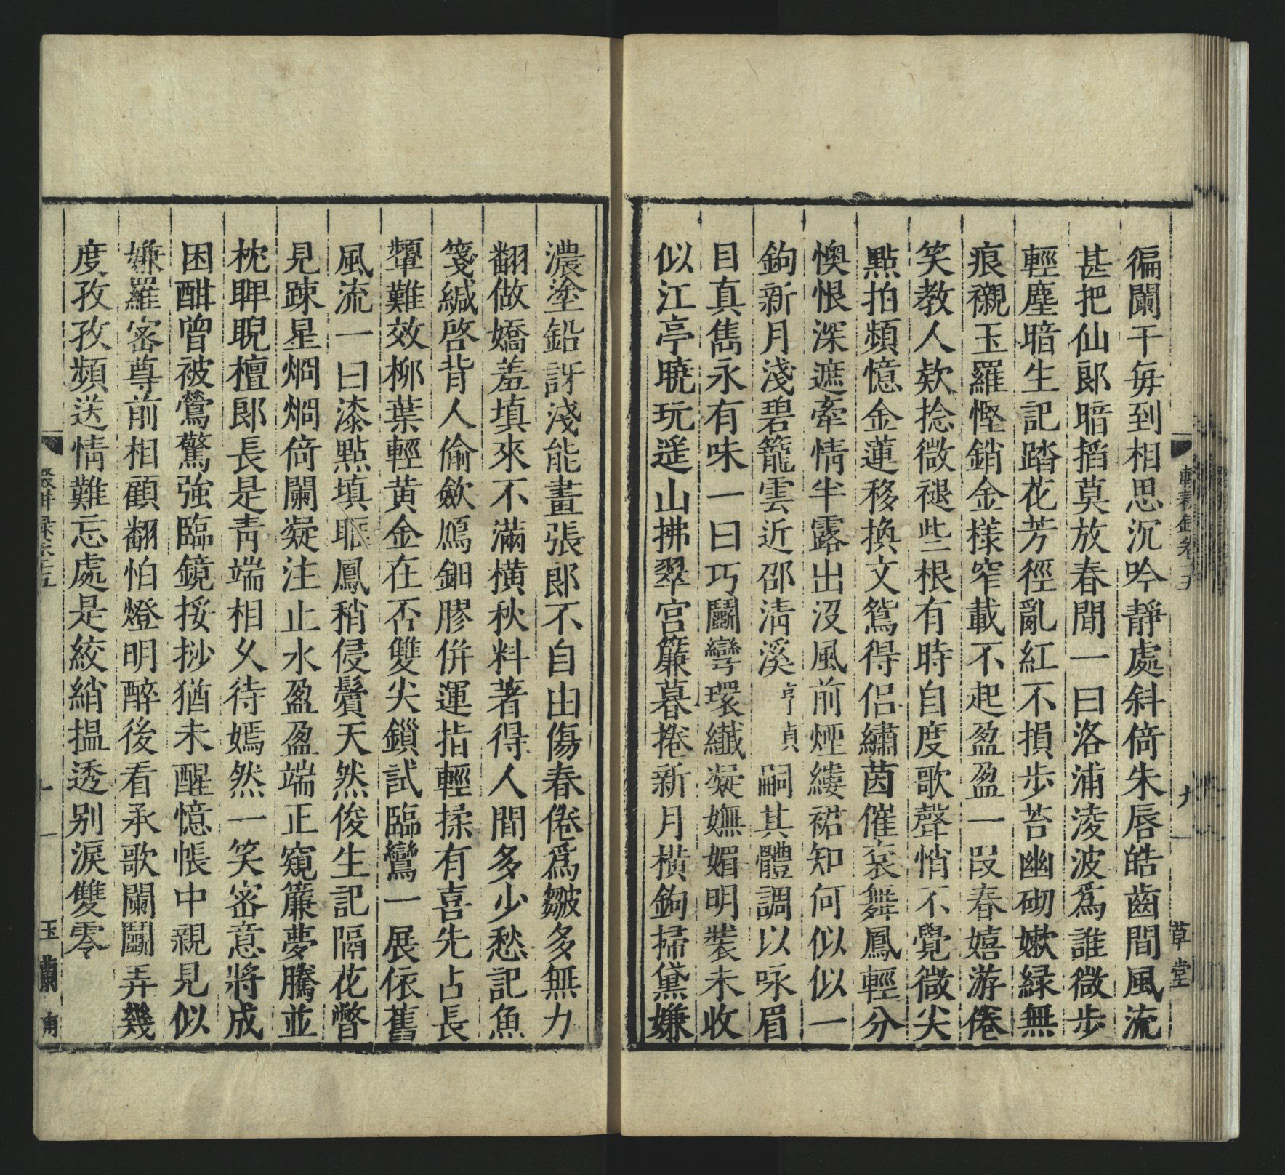 徧闌干毎到相思沉吟靜處斜倚朱唇皓齒間風流
甚把仙郎暗掐莫放春間一曰洛浦淩波爲誰微步
輕塵暗生記踏花芳徑亂紅不損步苔幽砌嫩緑無
痕襯玉羅慳銷金樣窄載不起盈盈一段春嬉游倦
笑教人欵捻微褪些根有時自度歌聲悄不覺微尖
點拍頻憶金蓮移換文鴛得侣繡茵催衮舞鳳輕分
懊恨深遮牽情半露出没風前煙縷裙知何似似一
鉤新月淺碧籠雲近邵淸溪亨貞嗣其體調以咏眉
目真雋永有味一曰巧鬬彎環纖凝嫵媚明裝未收
似江亭曉玩遥山拂翠宫簾暮捲新月橫鉤掃黛嫌
濃塗鉛訝淺能畫張郎不自由傷春倦爲皺多無力
翻做嬌羞填來不滿橫秋料著得人間多少愁記魚
箋緘啓背人偷斂鴈鈿膠併運指輕揉有喜先占長
顰難效柳葉輕黄金在否雙尖鎖試臨鸞一展依舊
風流一曰漆點填眶鳳稍侵鬢天然俊生記隔花瞥
見踈星炯炯倚闌凝注止水盈盈端正窺簾夢騰並
枕睥睨檀郎長是靑端相乆待嫣然一笑密意將成
困酣曾被鶯驚強臨鏡挼挱猶未醒憶帳中親見似
嫌羅密尊前相顧翻怕燈明醉後看承歌闌鬬弄幾
度孜孜頻送情難忘處是絞綃揾透别淚雙零
輟耕錄卷十五
九
草堂
十
玉蘭